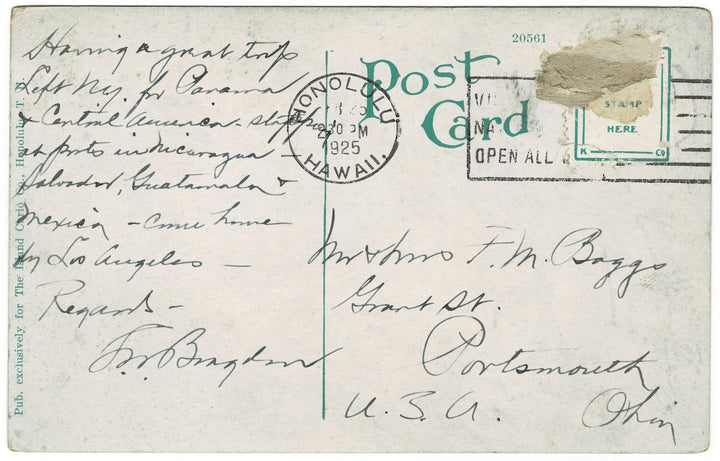 Having a great trip
Left N.Y. for Panama
& Central America - stopped
at ports in Nicaragua -
Salvador, Guatamala &
Mexico - come home
by Los Angeles -
Regards -
Bragdon
Pub. exclusively for The Island Curio Co., Honolulu, T. H.
Post
Card
20561
HONOLULU
30 PM
1925
HAWAII.
OPEN ALL
STAMP
HERE
K Co
Mr & Mrs F. M. Baggs
Grant St.
Portsmouth
Ohio
U.S.A.